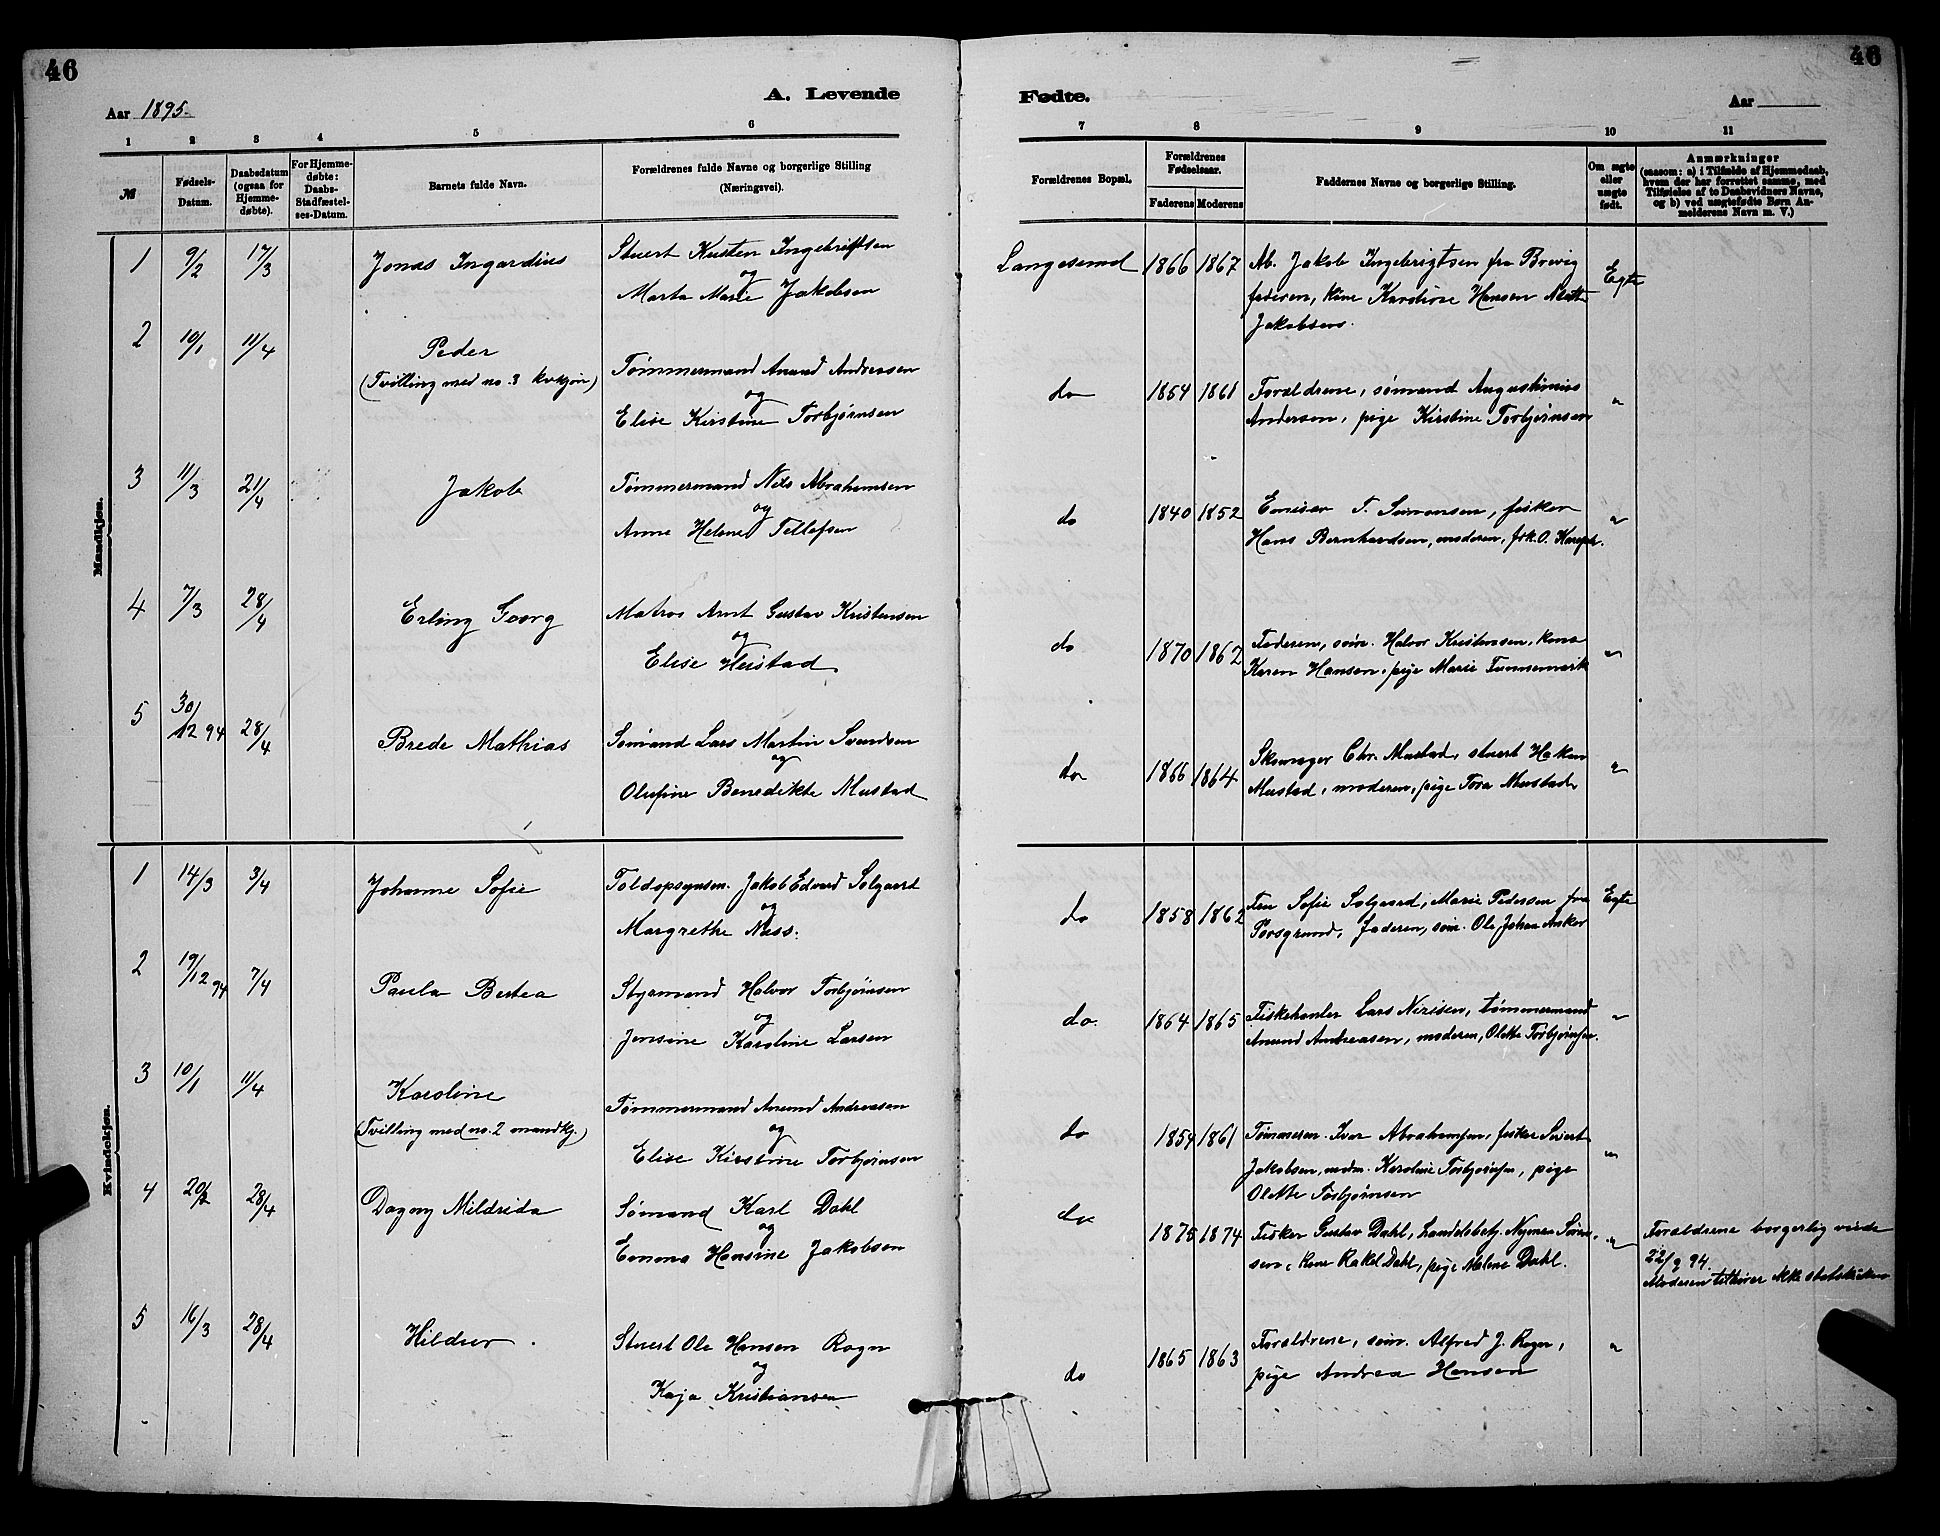 46
46
Aar 1895.
A. Levende
Fødte.
Aar
1 2 3 4 5 6
7 8 9 10 11
№
Fødsels-Datum.
Daabedatum (ogsaa for Hjemme-døbte).
For Hjemme-døbte: Daabs-Stadfæstel-ses-Datum.
Barnets fulde Navn.
Forældrenes fulde Navne og borgerlige Stilling (Næringsvei).
Forældrenes Bopæl.
Forældrenes Fødselsaar.
Faderens
Moderens
Faddernes Navne og borgerlige Stilling.
Om ægte eller uægte født.
Anmærkninger (saasom: a) i Tilfælde af Hjemmedaab, hvem der har forrettet samme, med Tilføielse af to Daabsvidners Navne, og b) ved uægtefødte Børn An-melderens Navn m. V.)
Mandkjøn.
1 9/2 17/3 Jonas Ingardius Stuert Kristen Ingebrigtsen
og
Marta Marie Jakobsen
Langesund 1866 1867 Ab. Jakob Ingebrigtsen fra Brevig
faderen, Karoline Hansen
Jakobsens.
Egte
2 10/1 11/4 Peder
(Tvilling med no. 3 kvkjøn)
Tømmermand Anund Andreasen
og
Elise Kirstine Torbjørnsen
do 1854 1861 Forældrene, sømand Augustinius
Andersen, pige Kirstine Torbjørnsen
"
3 11/3 21/4 Jakob Tømmermand Nils Abrahamsen
og
Anne Helene Tellefsen
do 1840 1852 T. Simonsen, fisker
Hans Bernhardsen, moderen, frk. O.
"
4 7/3 28/4 Erling Georg Matros Arnt Gustav Kristensen
og
Elise Heistad
do 1870 1862 Faderen, søm. Halvor Kristensen, kona
Karen Hansen, pige Marie
"
5 30/12 94 28/4 Brede Mathias Sømand Lars Martin Svendsen
og
Olufine Benedikte Mustad
do 1866 1864 Chr. Mustad, stuert Haken
Mustad, moderen, pige Tora Mustad
"
Kvindekjøn.
1 14/3 3/4 Johanne Sofie Toldopsynsm. Jakob Edvard Solgaard
og
Margrethe Næss.
do 1858 1862 Fru Sofie Solgaard, Marie Pedersen fra
Porsgrund, faderen, søm. Ole Johan Asker
Egte
2 19/12 94 7/4 Paula Bertea Styrmand Halvor Torbjørnsen
og
Jensine Karoline Larsen
do. 1864 1865 Fiskehanler Lars Nirisen, tømmermand
Anund Andreasen, moderen, Olette Torbjørnsen.
"
3 10/1 11/4 Karoline
(Tvilling med no. 2 mandkj.)
Tømmermand Anund Andreasen
og
Elise Kirstine Torbjørnsen
do 1854 1861 Tømmerm. Iver Abrahamsen, fisker Sivert
Jakobsen, madm. Karoline Torbjørnsen, pige
Olette Torbjørnsen
"
4 20/2 28/4 Dagny Mildrida Sømand Karl Dahl
og
Emma Hansine Jakobsen
do 1875 1874 Fisker Gustav Dahl, handelsbetj. Nyman Søren-
sen, kone Rakel Dahl, pige Malene Dahl.
"
Forældrene borgerlig viede
22/9 94.
Moderen tilhører ikke statskirken
5 16/3 28/4 Hildur Stuert Ole Hansen Rogn
og
Kaja Kristiansen
do 1865 1863 Forældrene, søm. Alfred J. Rogn,
pige Andrea Hansen
"